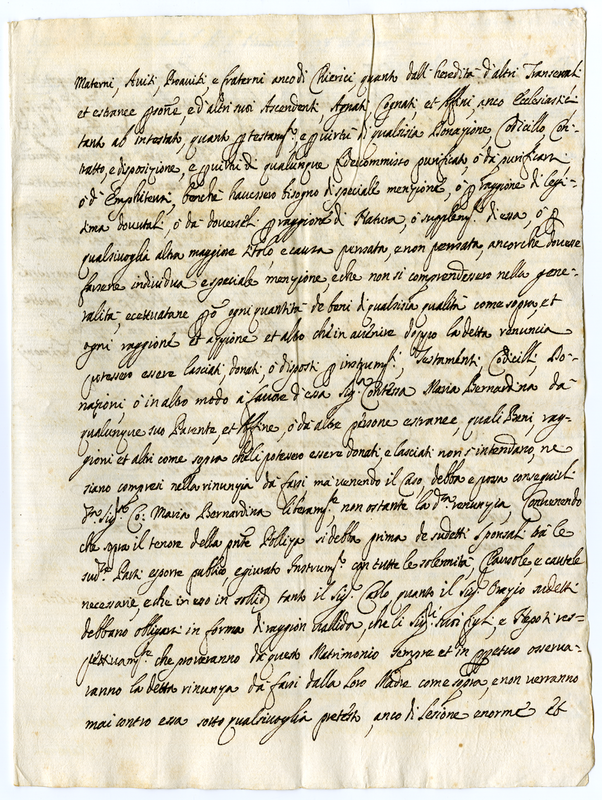 Materni, Aviti, Proaviti, e fraterni anco di Chierici quanto dall'heredità d'altri Transversali
et estranee psone, e d'altri suoi Ascendenti, Agnati Cognati et Affini, anco Ecclesiastici
tanto ab intestato, quanto p testamto, e p virtù di qualsisia Donazione Codicillo, Con-
tratto, e disposizione, e p virtù di qualunque fidecommisso purificato, ò da purificarsi
ò d'Emphiteusi, benche havessero bisogno di speciale menzione, ò p raggione di legi-
tima dovutali, ò da doverseli p raggione di Natura, ò supplemto di essa, ò p
qualsivoglia altra maggiore Titolo e causa pensata, e non pensata, ancorche dovesse
farsene individua e speciale menzione, e che non si comprendessero nella gene-
ralità, eccettuatane pò ogni quantità de beni di qualsisia qualità come sopra, et
ogni raggione et azzione et altro che in avvenire doppo la detta renuncia
potessero essere lasciati, donati, ò disposti p instrumti, Testamenti Codicilli, Do-
nazioni, ò in altro modo à favore d'essa Sigra Contessa Maria Bernardina da
qualunque suo Parente, et Affine, ò da altre psone estranee, quali Beni, rag-
gioni et altri come sopra che li potessero essere donati, e lasciati non s'intendano, ne
siano compresi nella rinunzia da farsi ma venendo il caso debba e possa conseguirli
da Sigra Co: Maria Bernardina liberamte non ostante la da renunzia, Convenendo
che sopra il tenore della pnte Polliza si debba prima de sudetti sponsali trà le
sude Parti esporre publico e giurato Instrumto con tutte le solennità, Clausole, e cautele
necessarie, e che in esso in solido tanto il Sigr Carlo quanto il Sigr Orazio sudetti
debbano obligarsi in forma di raggion vallida, che li Sigri suoi figli, e Nepoti res-
pettivamte che proveranno da questo Matrimonio sempre et in ppetuo osserva-
ranno la detta rinunza da farsi dalla loro Madre come sopra, e non verranno
mai contro essa sotto qualsivoglia pretesto, anco di lesione enorme et